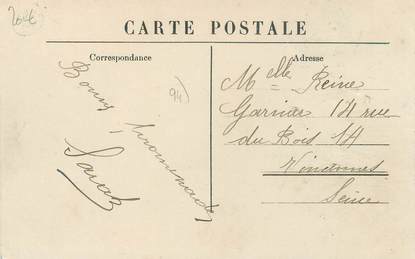 20€
CARTE POSTALE
Correspondance
Adresse
94
Bonne
promenade
Sarah
Melle Reine
Garnier 14 rue
du Bois 14
Vincennes
Seine